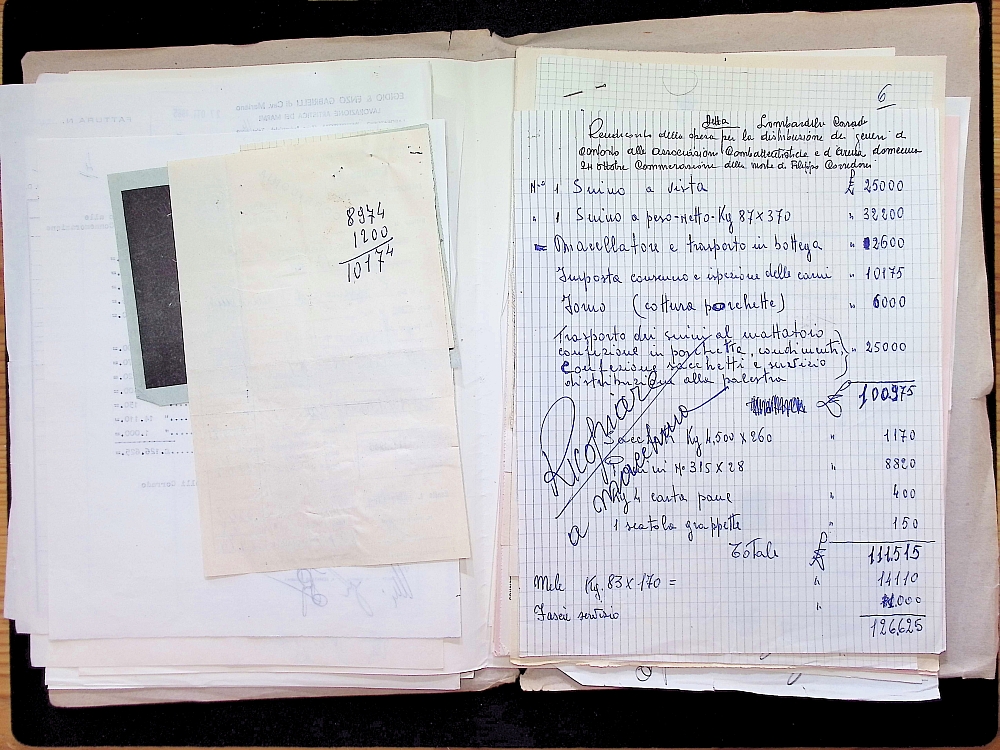 EGINIO & ENZO GABRIELLI di Cav. Mariano
FATTURA N.
8974
1200
10174
6
Ditta Lombardelli Corrado
Rendiconto della opera per la distribuzione dei generi di
conforto alle Associazioni Combattentistiche e d'arma domenica
24 ottobre Commemorazione della morte di Filippo Corridoni
N° 1 Suino a vista £ 25000
" 1 Suino a peso-netto-Kg 87x370 " 32200
Macellatore e trasporto in bottega " 2600
Imposta consumo e ispezione delle carni " 10175
Forno (cottura porchette) " 6000
Trasporto dei suini al mattatoio
confezione in porchetta, condimenti,
confezione sacchetti e servizio
distribuzione alla palestra
" 25000
£ 100.975
Ricopiare
a macchina
Sacchetti Kg 4,500 x 260 " 1170
Panini N° 315 x 28 8820
Kg 4 carta pane " 400
1 scatola grappette " 150
Totale £ 111.515
Mele Kg. 83 x 170 = " 14110
servizio " 1.000
126.625